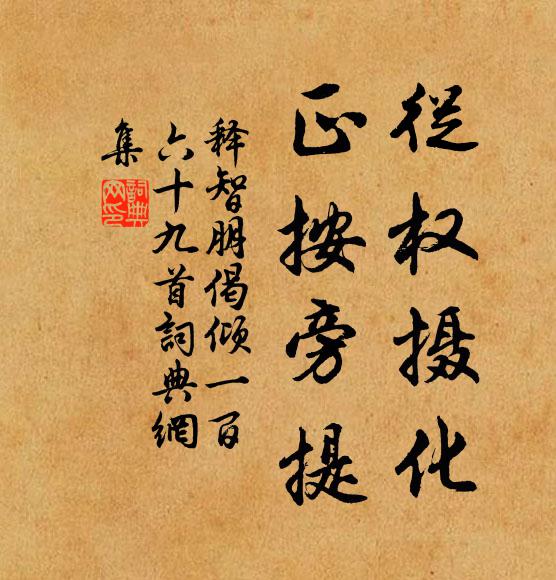 從权摄化
正按旁提
释智朋偈倾一百
六十九首詞典網
集
詞典
网印